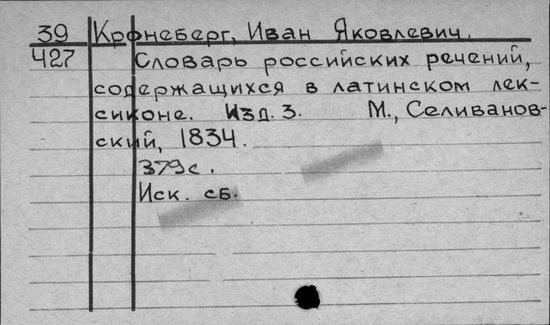 39 Кронеберг, Иван Яковлевич.
427 Словарь российских речений,
содержащихся в латинском лек-
сиконе. Изд. 3. М., Селиванов-
ский, 1834.
379с.
Иск. сб.